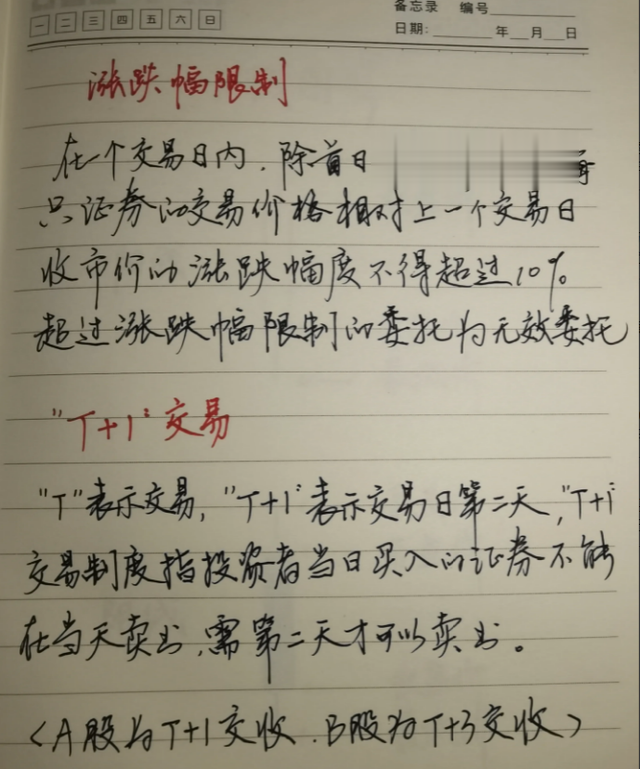 备忘录 编号
一 二 三 四 五 六 日
日期: 年 月 日
涨跌幅限制
在一个交易日内，除首日
只证券的交易价格相对上一个交易日
收市价的涨跌幅度不得超过10%
超过涨跌幅限制的委托为无效委托
"T+1"交易
"T"表示交易，"T+1"表示交易日第二天，"T+1"
交易制度指投资者当日买入的证券不能
在当天卖出，需第二天才可以卖出。
<A股为T+1交收．B股为T+3交收>